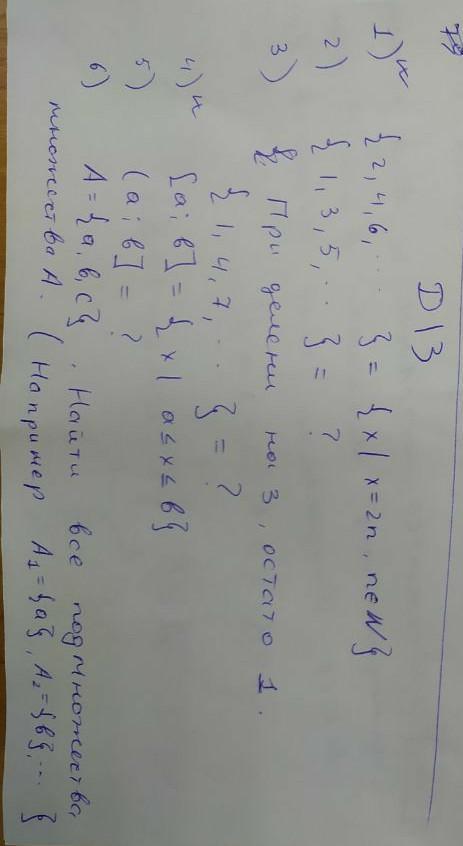 Д/З
1) н {2, 4, 6, ... } = { x | x = 2n, n ∈ N }
2) { 1, 3, 5, ... } = ?
3) При делении на 3, остато 1.
{ 1, 4, 7, ... } = ?
4) н [a; b] = { x | a ≤ x ≤ b }
5) (a; b] = ?
6) A = {a, b, c}. Найти все подмножества,
множества A. (Например A₁ = {a}, A₂ = {b}, ... }